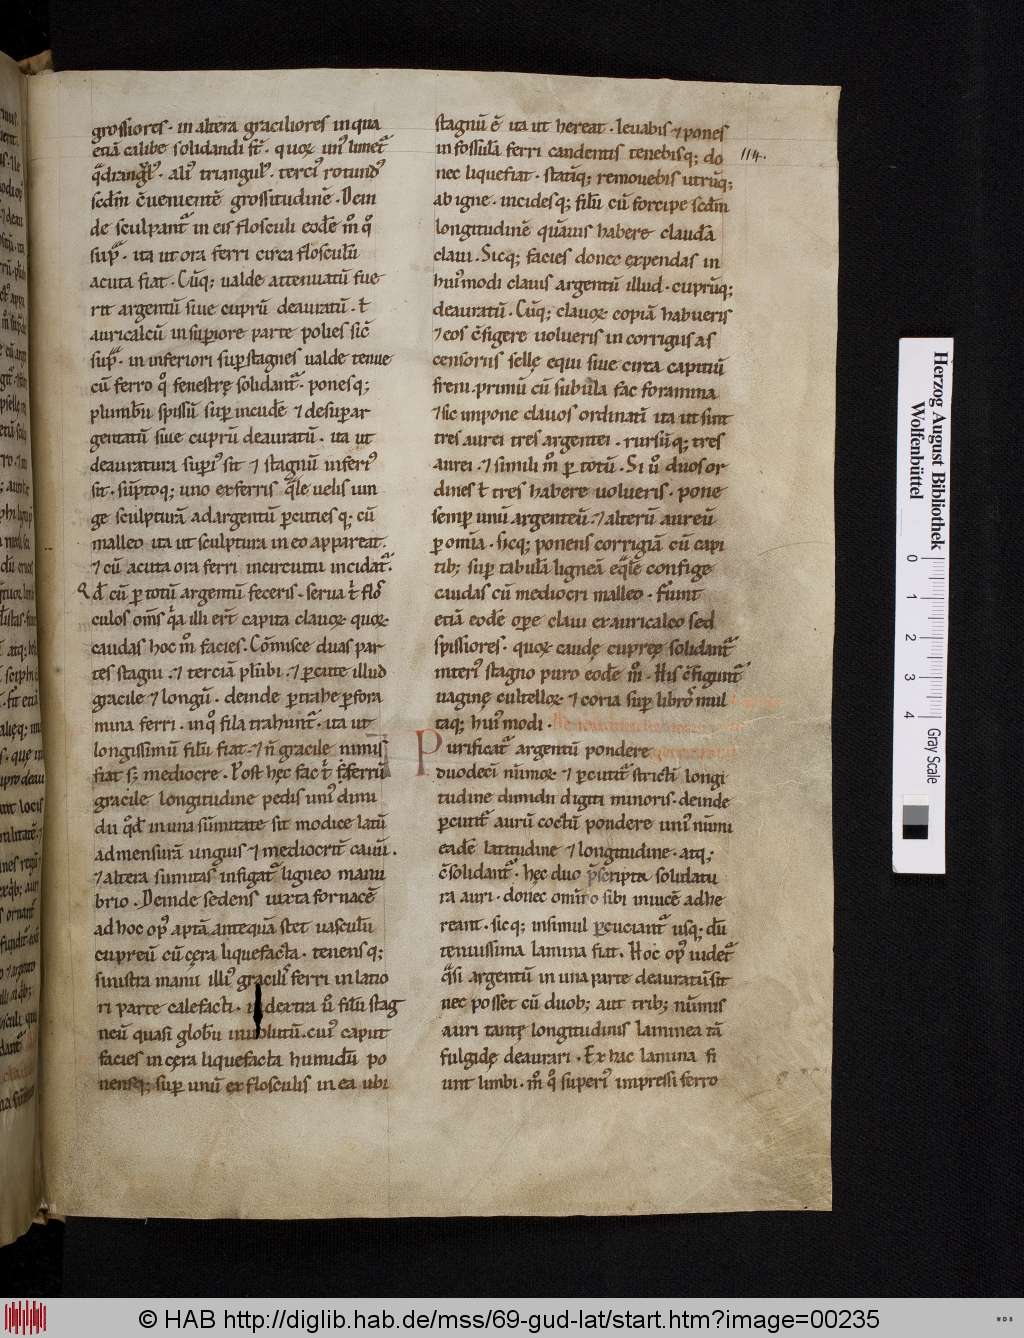 grossiores · in altera graciliores in qua
etiā calibe solidandi st̄ · quoꝝ un᷒ limet᷑
qᷓdrangl̓ · ali᷒ triangul᷒ · terci᷒ rotund᷒
scd̄m c̄uenientē grossitudinē · Dein
de sculpant᷑ in eis flosculi eodē m̊ q̊
supᷓ · ita ut ora ferri circa flosculū
acuta fiat · Cūq; ualde attenuatū fue
rit argentū siue cuprū deauratū · ł
auricalcū in supiore parte polies sic̄
supᷓ · in inferiori sup stagnes ualde tenue
cū ferro q̊ fenestrę solidant᷑ · ponesq;
plumbū spissū sup incudē ⁊ desup ar
gentatū siue cuprū deauratū · ita ut
deauratura supi᷒ sit ⁊ stagnū inferi᷒
sit · sūptoq; uno ex ferris qᷓle uelis iun
ge sculpturā ad argentū ꝑcuties q; cū
malleo ita ut sculptura in eo appareat ·
⁊ cū acuta ora ferri in circuitu incidat᷑ ·
Qd̄ cū ꝑ totū argentū feceris · serua t̓ flo
culos om̄s qᷓ illi er̄t capita clauoꝝ quoꝝ
caudas hoc m̊ facies · Cōmisce duas par
tes stagni ⁊ terciā plūbi · ⁊ ꝑcute illud
gracile ⁊ longū · deinde ꝑtrahe ꝑ fora
mina ferri · in q᷒ fila trahunt᷑ · ita ut
longissimū filū fiat · ⁊ n̄ gracile nimis
fiat s; mediocre · Post hęc fac t̓ ferrū
gracile longitudine pedis uni᷒ dimi
dii qd̄ in una sūmitate sit modice latū
ad mensurā unguis ⁊ mediocrit̄ cauū ·
⁊ altera sumitas infigat᷑ ligneo manu
brio · Deinde sedens iuxta fornacē
ad hoc op᷒ aptā ante quā stet uasculū
cupreū cū cęra liquefacta · tenensq;
sinistra manu illi᷒ gracili᷒ ferri in latio
ri parte calefacti · i dextra u̓ filū stag
neū quasi globū inuolutū · cui᷒ caput
facies in cęra liquefacta humidū po
nensq; sup unū ex flosculis in ea ubi
stagnū ē ita ut hereat · leuabis ⁊ pones
in fossulā ferri candentis tenebisq; do
nec liquefiat · statīq; remouebis utrūq;
ab igne · incidesq; filū cū forcipe scd̄m
longitudinē quā uis habere claudā
claui · Sicq; facies donec expendas in
hui᷒modi clauis argentū illud · cuprūq;
deauratū · Cūq; clauoꝝ copiā habueris
⁊ eos c̄figere uolueris in corrigus as
censoriis sellę equi siue circa capitiū
freni · primū cū subula fac foramina
⁊ sic impone clauos ordinati ita ut sint
tres aurei tres argentei · rursūq; tres
aurei · ⁊ simili m̊ ꝑ totū · Si u̓ duos or
dines ł tres habere uolueris · pone
semp unū argenteū · ⁊ alterū aureū
ꝑ omīa · sicq; ponens corrigiā cū capi
tib; sup tabulā ligneā eqᷓlē confige
caudas cū mediocri malleo · Fiunt
etiā eodē ope claui ex auricalco sed
spissiores · quoꝝ caudę cuprę solidant᷑
interi᷒ stagno puro eodē m̊ · His c̄figunt᷑
uaginę cultelloꝝ ⁊ coria sup libroꝝ mul
taq; hui᷒ modi ·
Purificat᷑ argentū pondere
duodecī nūmoꝝ ⁊ ꝑcutit᷑ stricti longi
tudine dimidii digiti minoris · deinde
ꝑcutit᷑ aurū coctū pondere uni᷒ nūmi
eadē latitudine ⁊ longitudine · atq;
c̄solidant᷑ · hęc duo p̄scripta solidatu
ra auri · donec omīo sibi inuicē adhe
reant · sicq; insimul ꝑcuciant᷑ usq; dū
tenuissima lamina fiat · Hoc op᷒ uidet᷑
qᷓsi argentū in una parte deauratū sit
nec posset cū duob; aut trib; nūmis
auri tantę longitudinis laminea tā
fulgidę deaurari · Ex hac lamina fi
unt limbi · m̊ q̊ superi᷒ impressi ferro
114.
Herzog August Bibliothek
Wolfenbüttel
0
1
2
3
4
Gray Scale
© HAB http://diglib.hab.de/mss/69-gud-lat/start.htm?image=00235